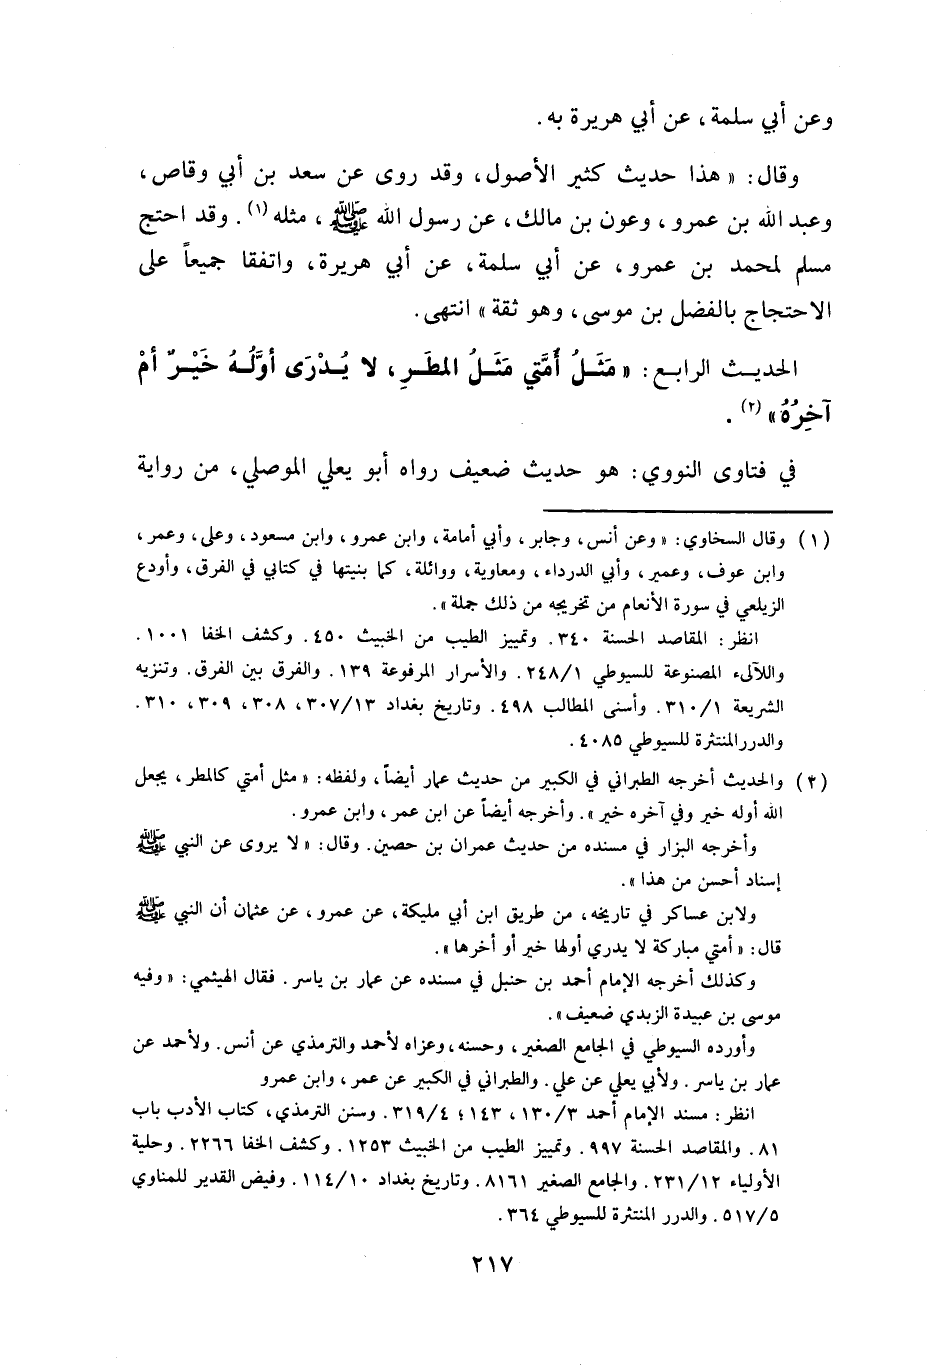 وعن أبي سلمة، عن أبي هريرة به.
وقال: « هذا حديث كثير الأصول، وقد روى عن سعد بن أبي وقاص،
وعبد الله بن عمرو، وعون بن مالك، عن رسول الله ﷺ، مثله (١). وقد احتج
مسلم لمحمد بن عمرو، عن أبي سلمة، عن أبي هريرة، واتفقا جميعاً على
الاحتجاج بالفضل بن موسى، وهو ثقة » انتهى.
الحديث الرابع: « مَثَلُ أُمَّتي مَثَلُ المطَرِ، لا يُدْرَى أوَّلُهُ خَيْرٌ أمْ
آخِرُهُ » (٢).
في فتاوى النووي: هو حديث ضعيف رواه أبو يعلي الموصلي، من رواية
(١) وقال السخاوي: « وعن أنس، وجابر، وأبي أمامة، وابن عمرو، وابن مسعود، وعلى، وعمر،
وابن عوف، وعمير، وأبي الدرداء، ومعاوية، ووائلة، كما بنيتها في كتابي في الفرق، وأودع
الزيلعي في سورة الأنعام من تخريجه من ذلك جملة ».
انظر: المقاصد الحسنة ٣٤٠. وتمييز الطيب من الخبيث ٤٥٠. وكشف الخفا ١٠٠١.
واللآلىء المصنوعة للسيوطي ٢٤٨/١. والأسرار المرفوعة ١٣٩. والفرق بين الفرق. وتنزيه
الشريعة ٣١٠/١. وأسنى المطالب ٤٩٨. وتاريخ بغداد ٣٠٧/١٣، ٣٠٨، ٣٠٩، ٣١٠.
والدررالمنتثرة للسيوطي ٤٠٨٥.
(٢) والحديث أخرجه الطبراني في الكبير من حديث عمار أيضاً، ولفظه: « مثل أمتي كالمطر، يجعل
الله أوله خير وفي آخره خير ». وأخرجه أيضاً عن ابن عمر، وابن عمرو.
وأخرجه البزار في مسنده من حديث عمران بن حصين. وقال: « لا يروى عن النبي ﷺ
إسناد أحسن من هذا ».
ولابن عساكر في تاريخه، من طريق ابن أبي مليكة، عن عمرو، عن عثمان أن النبي ﷺ
قال: « أمتي مباركة لا يدري أولها خير أو أخرها ».
وكذلك أخرجه الإمام أحمد بن حنبل في مسنده عن عمار بن ياسر. فقال الهيثمي: « وفيه
موسى بن عبيدة الزبدي ضعيف ».
وأورده السيوطي في الجامع الصغير، وحسنه، وعزاه لأحمد والترمذي عن أنس. ولأحمد عن
عمار بن ياسر. ولأبي يعلي عن علي. والطبراني في الكبير عن عمر، وابن عمرو
انظر: مسند الإمام أحمد ١٣٠/٣، ١٤٣؛ ٣١٩/٤. وسنن الترمذي، كتاب الأدب باب
٨١. والمقاصد الحسنة ٩٩٧. وتمييز الطيب من الخبيث ١٢٥٣. وكشف الخفا ٢٢٦٦. وحلية
الأولياء ٢٣١/١٢. والجامع الصغير ٨١٦١. وتاريخ بغداد ١١٤/١٠. وفيض القدير للمناوي
٥١٧/٥. والدرر المنتثرة للسيوطي ٣٦٤.
٢١٧